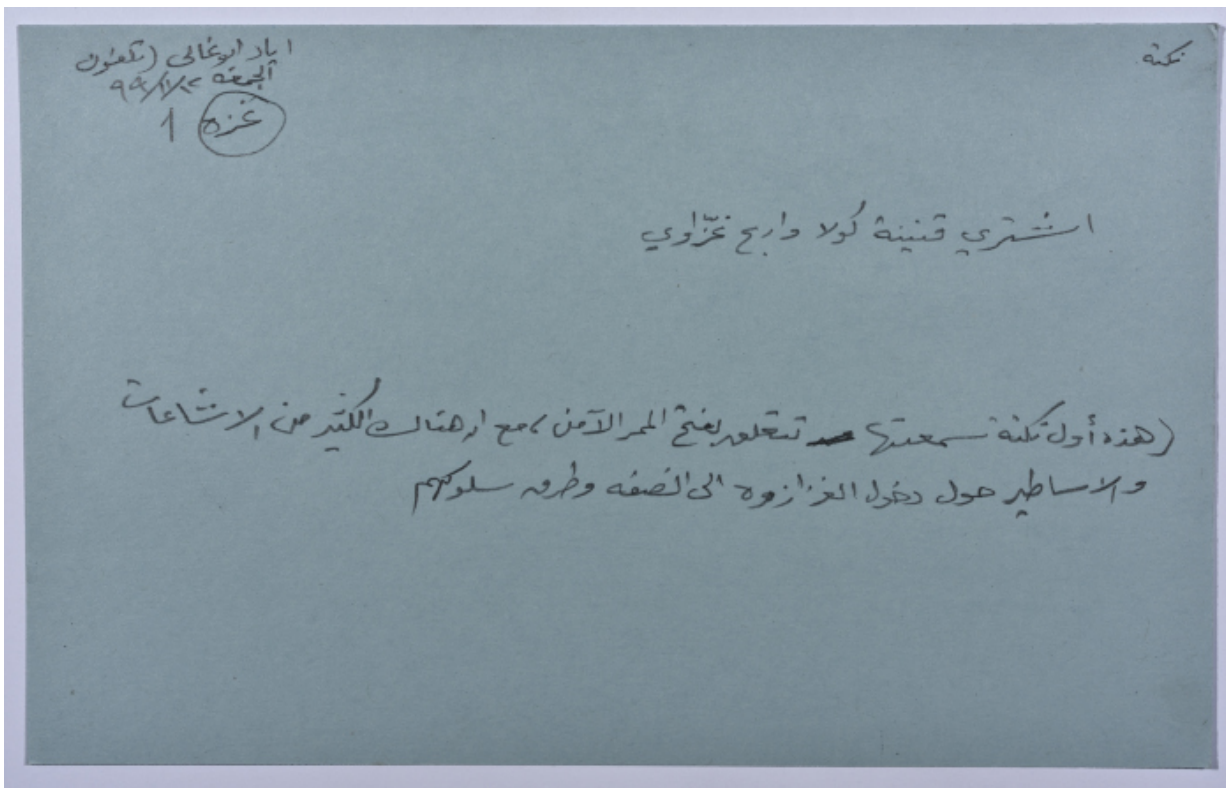 نكتة
اياد ابو غالي (تلفون
الجمعة ٩٩/١١/١٢
غزه 1
اشتري قنينة كولا واربح غزّاوي
(هذه أول نكتة سمعتها تتعلق بفتح الممر الآمن، مع ان هناك الكثير من الاشاعات
والاساطير حول دخول الغزازوه الى الضفه وطرق سلوكهم